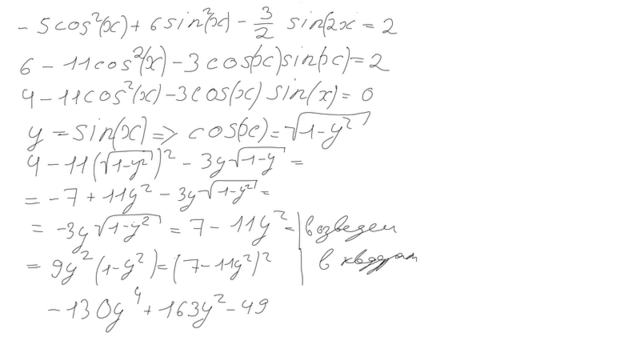 - 5cos²(x) + 6sin²(x) - 3/2 sin(2x = 2
6 - 11cos²(x) - 3cos(x)sin(x) = 2
4 - 11cos²(x) - 3cos(x) sin(x) = 0
y = sin(x) => cos(x) = √(1-y²)
4 - 11(√(1-y²))² - 3y√(1-y) =
= -7 + 11y² - 3y√(1-y²) =
= -3y√(1-y²) = 7 - 11y² = | возведем
= 9y²(1-y²) = (7-11y²)² | в квадрат
-130y⁴ + 163y² - 49